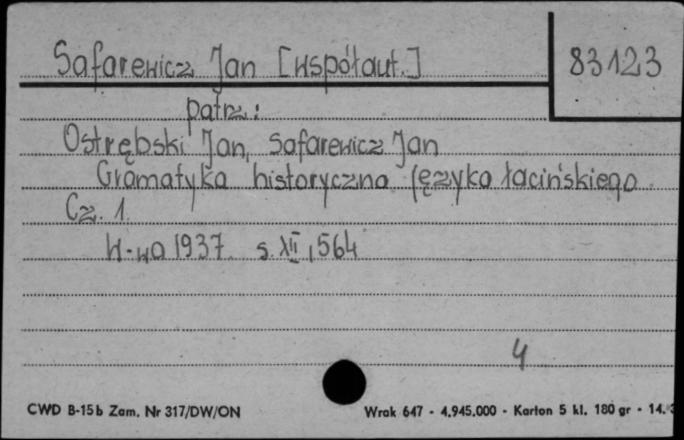 Safarewicz Jan [współaut.]
83123
patrz:
Ostrębski Jan, Safarewicz Jan
Gramatyka historyczna języka łacińskiego
Cz. 1.
W-wa 1937. s. XII, 564
4
CWD B-15b Zam. Nr 317/DW/ON
Wrak 647 - 4.945.000 - Karton 5 kl. 180 gr - 14.